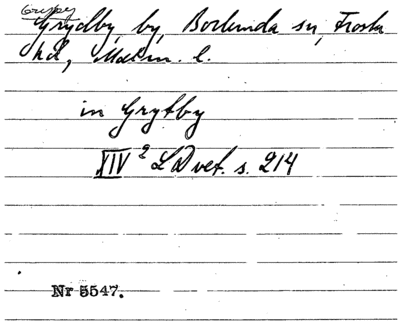 Grydby by, Borlunda sn, Frosta
hd, Malm. l.
in Grytby
XIV² LD vet. s. 214
Nr 5547.